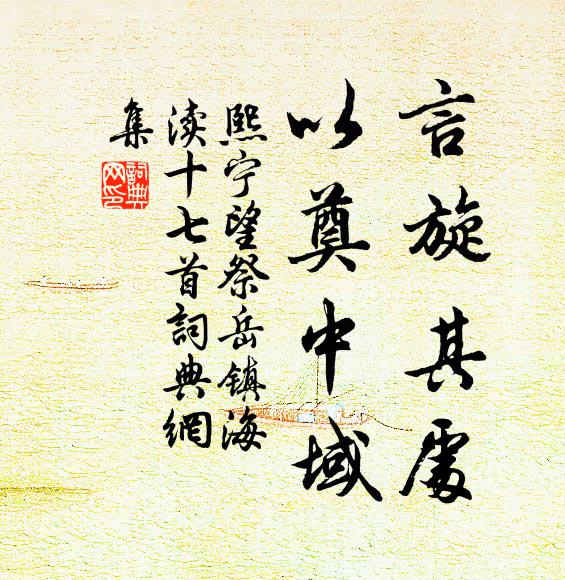 言旋其處
以奠中域
熙宁望祭岳镇海
渎十七首詞典網
集
詞典
网印